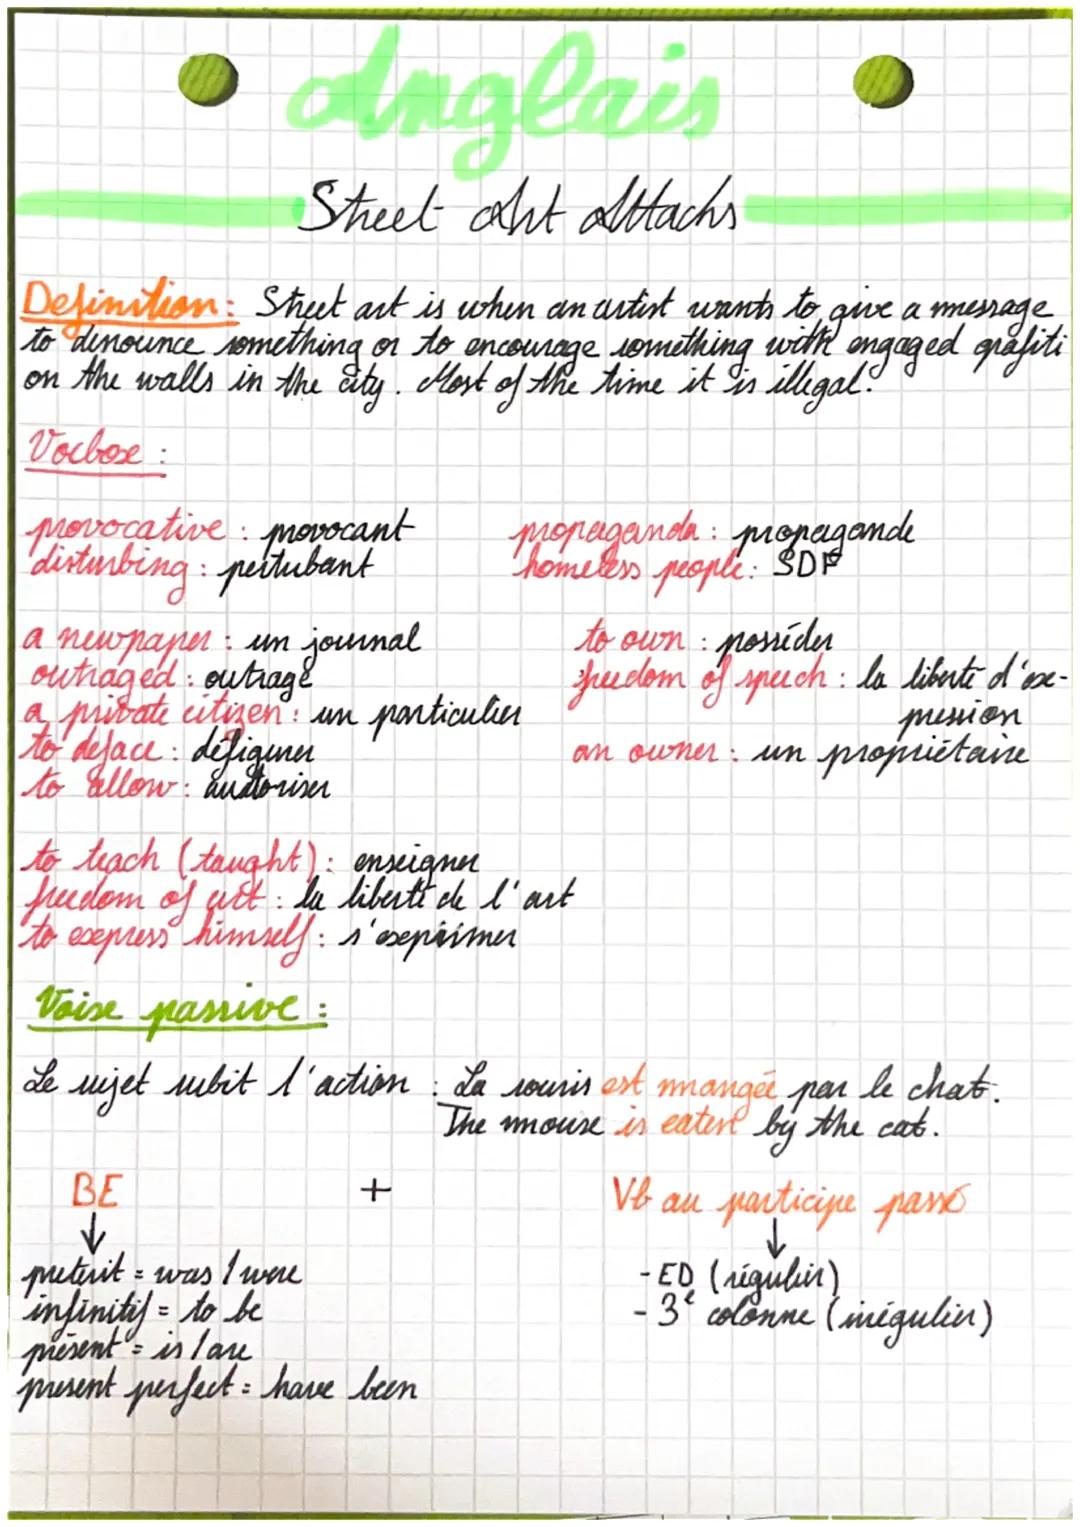 Anglais
Street Art Attacks
Definition: Street art is when an artist wants to give a message
to denounce something or to encourage something with engaged grafiti
on the walls in the city. Most of the time it is illegal.
Vocbox :
provocative : provocant
propaganda : propagande
disturbing : pertubant
homeless people : SDF
a newpaper : un journal
to own : posséder
outraged : outragé
freedom of speech : la liberté d'ex-
pression
a private citizen : un particulier
to deface : défigurer
an owner : un propriétaire
to allow : autoriser
to teach (taught) : enseigner
freedom of art : la liberté de l'art
to express himself : s'exprimer
Voix passive :
Le sujet subit l'action : La souris est mangée par le chat.
The mouse is eaten by the cat.
BE + Vb au participe passé
↓ ↓
preterit = was / were
- ED (régulier)
infinitif = to be
- 3e colonne (irégulier)
présent = is / are
present perfect = have been